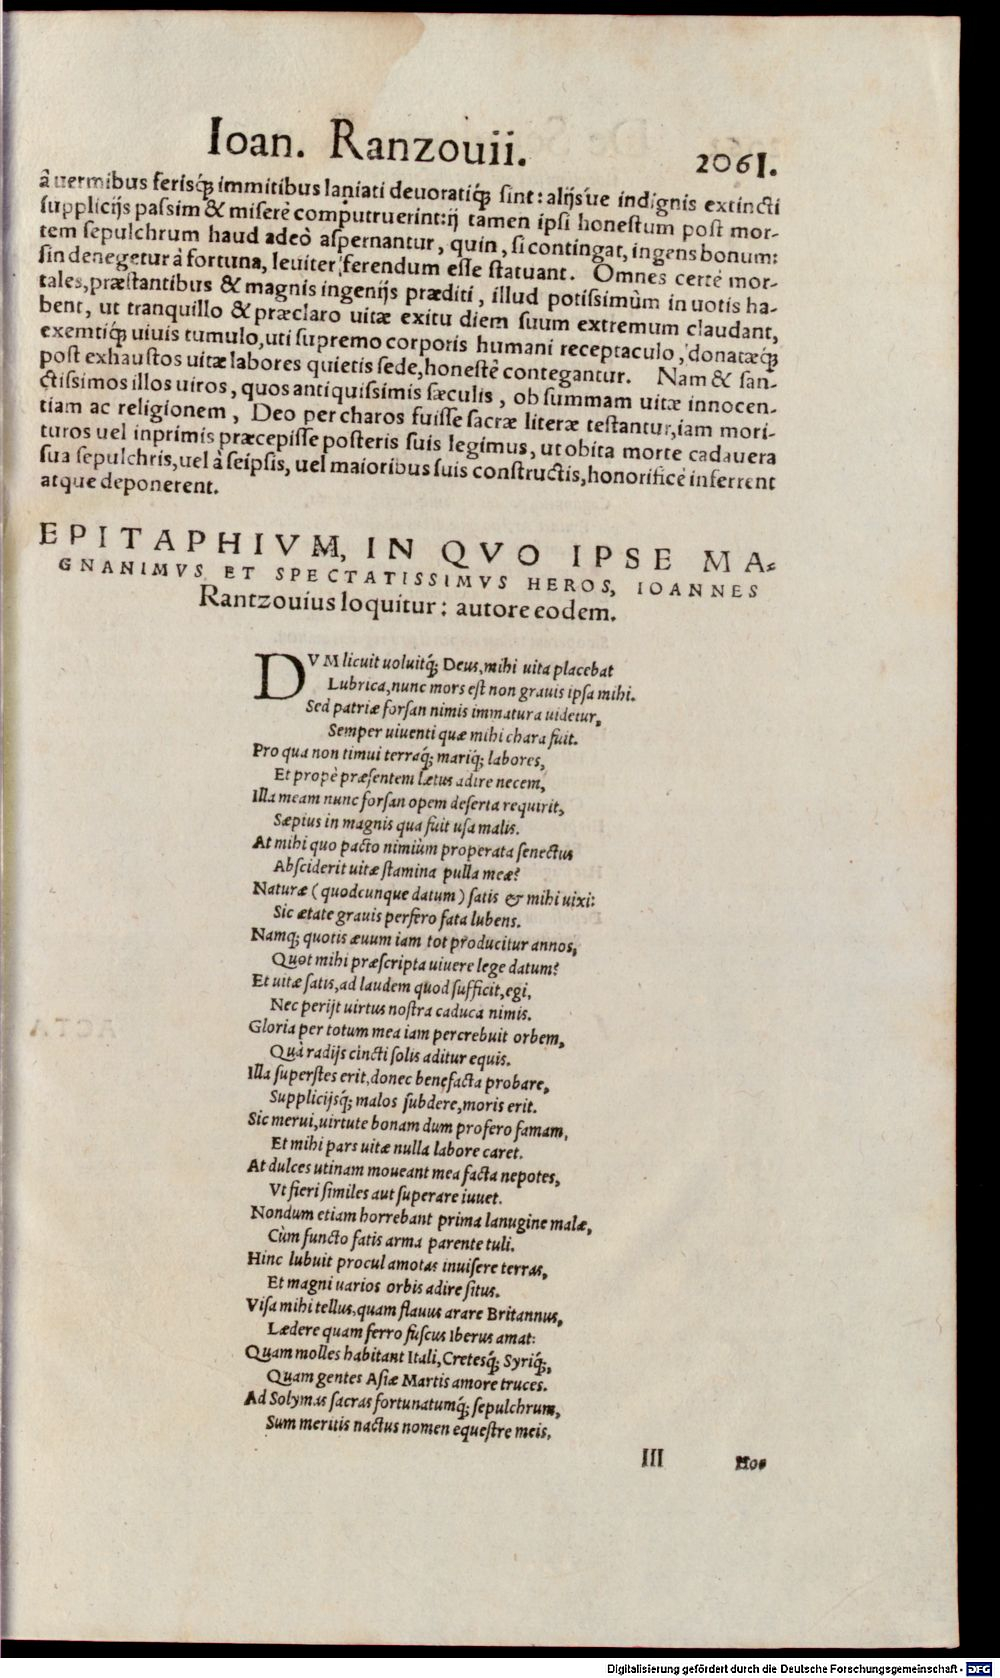 Ioan. Ranzouii. 2061.
â uermibus ferisq́; immitibus laniati deuoratiq́; sint: alijs'ue indignis extincti
supplicijs passim & miserè computruerint: ij tamen ipsi honestum post mor-
tem sepulchrum haud adeò aspernantur, quin, si contingat, ingens bonum:
sin denegetur à fortuna, leuiter ferendum esse statuant. Omnes certè mor-
tales, præstantibus & magnis ingenijs præditi, illud potissimùm in uotis ha-
bent, ut tranquillo & præclaro uitæ exitu diem suum extremum claudant,
exemtiq́; uiuis tumulo, uti supremo corporis humani receptaculo, donatæq́;
post exhaustos uitæ labores quietis sede, honestè contegantur. Nam & san-
ctissimos illos uiros, quos antiquissimis sæculis, ob summam uitæ innocen-
tiam ac religionem, Deo per charos fuisse sacræ literæ testantur, iam mori-
turos uel inprimis præcepisse posteris suis legimus, ut obita morte cadauera
sua sepulchris, uel à seipsis, uel maioribus suis constructis, honorificè inferrent
atque deponerent.
EPITAPHIVM, IN QVO IPSE MA-
GNANIMVS ET SPECTATISSIMVS HEROS, IOANNES
Rantzouius loquitur: autore eodem.
DVM licuit uoluitq́; Deus, mihi uita placebat
Lubrica, nunc mors est non grauis ipsa mihi.
Sed patriæ forsan nimis immatura uidetur,
Semper uiuenti quæ mihi chara fuit.
Pro qua non timui terraq́; mariq́; labores,
Et propè præsentem lætus adire necem,
Illa meam nunc forsan opem deserta requirit,
Sæpius in magnis qua fuit usa malis.
At mihi quo pacto nimiùm properata senectus
Absciderit uitæ stamina pulla meæ?
Naturæ (quodcunque datum) satis & mihi uixi:
Sic ætate grauis perfero fata lubens.
Namq; quotis æuum iam tot producitur annos,
Quot mihi præscripta uiuere lege datum?
Et uitæ satis, ad laudem quod sufficit, egi,
Nec perijt uirtus nostra caduca nimis.
Gloria per totum mea iam percrebuit orbem,
Quà radijs cincti solis aditur equis.
Illa superstes erit, donec benefacta probare,
Supplicijsq́; malos subdere, moris erit.
Sic merui, uirtute bonam dum profero famam,
Et mihi pars uitæ nulla labore caret.
At dulces utinam moueant mea facta nepotes,
Vt fieri similes aut superare iuuet.
Nondum etiam horrebant prima lanugine malæ,
Cùm functo fatis arma parente tuli.
Hinc lubuit procul amotas inuisere terras,
Et magni uarios orbis adire situs.
Visa mihi tellus, quam flauus arare Britannus,
Lædere quam ferro fuscus Iberus amat:
Quam molles habitant Itali, Cretesq́; Syriq́;,
Quam gentes Asiæ Martis amore truces.
Ad Solymas sacras fortunatumq́; sepulchrum,
Sum meritis nactus nomen equestre meis.
III Hos
Digitalisierung gefördert durch die Deutsche Forschungsgemeinschaft - DFG